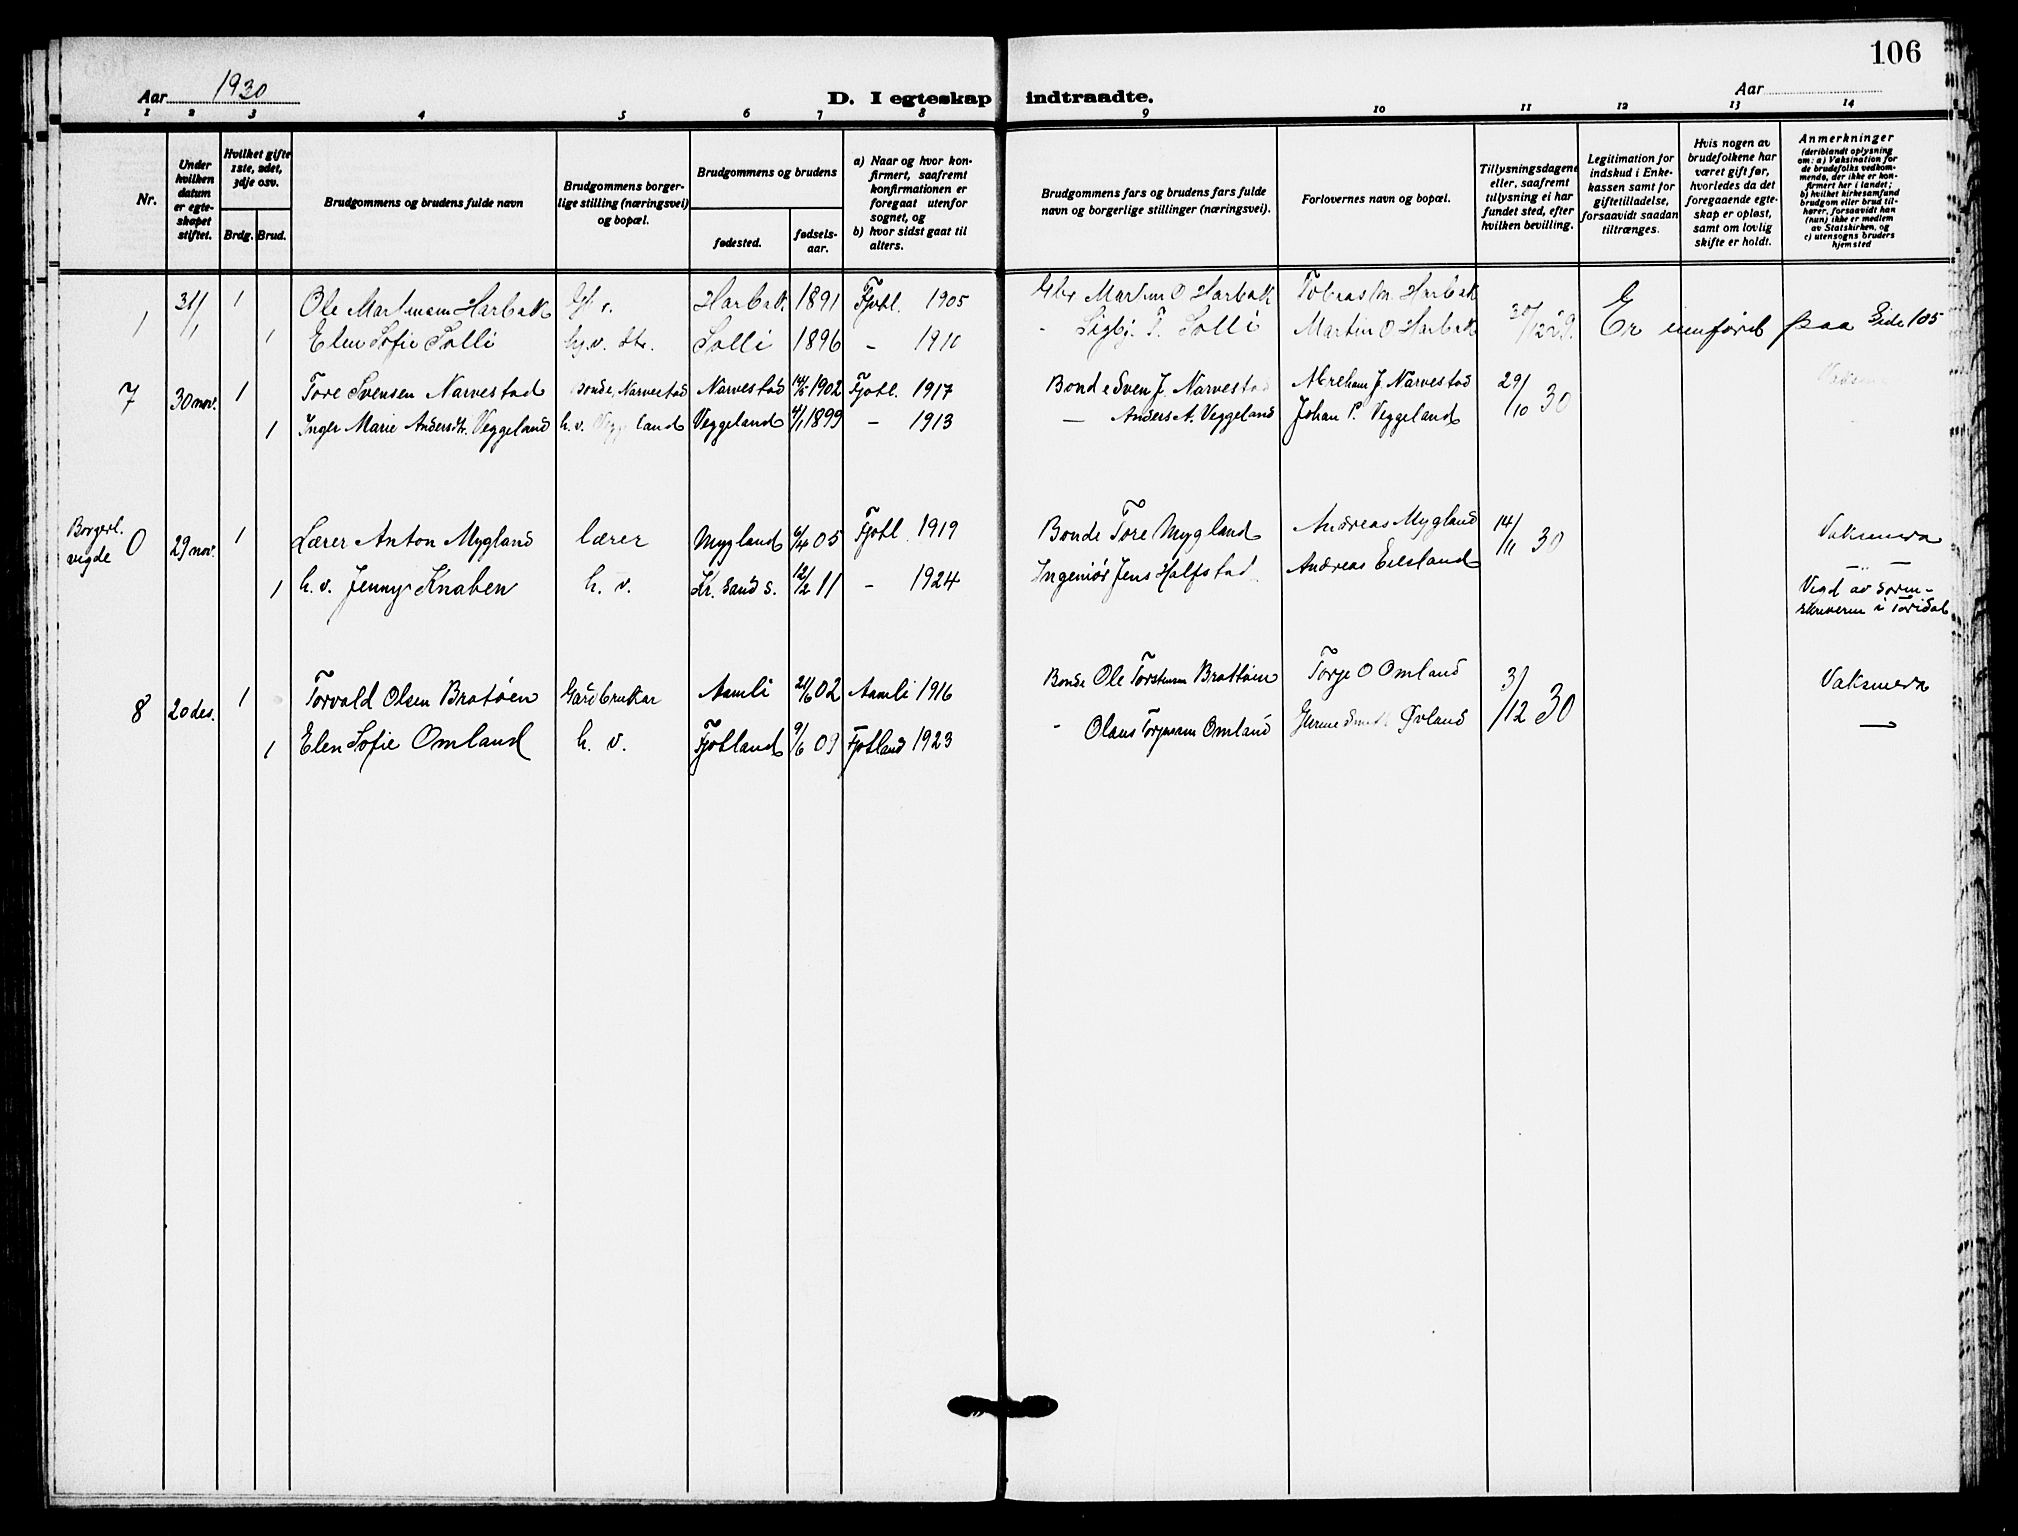 106
Aar 1930
D. I egteskap indtraadte.
Aar
1 2 3 4 5 6 7 8 9 10 11 12 13 14
Nr.
Under hvilken datum er egteskapet stiftet.
Hvilket gifte 1ste, 2det, 3dje osv.
Brdg. Brud.
Brudgommens og brudens fulde navn
Brudgommens borgerlige stilling (næringsvei) og bopæl.
Brudgommens og brudens
fødested.
fødselsaar.
a) Naar og hvor konfirmert, saafremt konfirmationen er foregaat utenfor sognet, og
b) hvor sidst gaat til alters.
Brudgommens fars og brudens fars fulde navn og borgerlige stillinger (næringsvei).
Forlovernes navn og bopæl.
Tillysningsdagene eller, saafremt tillysning ei har fundet sted, efter hvilken bevilling.
Legitimation for indskud i Enkekassen samt for giftetilladelse, forsaavidt saadan tiltrænges.
Hvis nogen av brudefolkene har været gift før, hvorledes da det foregaaende egteskap er opløst, samt om lovlig skifte er holdt.
Anmerkninger
(deriblandt oplysning om: a) Vaksination for de brudefolks vedkommende, der ikke er konfirmert her i landet; b) hvilket kirkesamfund brudgom eller brud tilhører, forsaavidt han (hun) ikke er medlem av Statskirken, og c) utensogns bruders hjemsted
1 31/1 1 Ole Martinsen Harbak Harbak. 1891 Fjotl. 1905 Gbr Martin O Harbak Tobias Harbak 30/12 29. Er innført paa Side 105
1 Elen Sofie Solli Solli 1896 – 1910 - Sigbj. T. Solli Martin O Harbak
7 30 nov. 1 Tore Svensen Narvestad Bonde, Narvestad Narvestad 14/5 1902 Fjotl. 1917 Bonde Sven J. Narvestad Abraham J. Narvestad 29/10 30
1 Inger Marie Andersdt. Veggeland h. v. Veggeland Veggeland 4/1 1899 – 1913 — Anders A. Veggeland Johan P. Veggeland
Borgerl. vigde 0 29 nov. 1 Lærer Anton Mygland lærer Mygland 6/4 05 Fjotl. 1919 Bonde Tore Mygland Andreas Mygland 14/11 30 Vaksinera
1 h. v. Jenny Knaben h. v. Kr. sand s. 12/2 11 – 1924 Ingeniør Jens Halfstad. Andreas Eiesland — „ —
Vigd av sorenskriveren i Torridal
8 20 des. 1 Torvald Olsen Bratøen Gardbrukar Aamli 21/6 02 Aamli 1916 Bonde Ole Torsteinsen Brattøen Torje O Omland 3/12 30 Vaksinera
1 Elen Sofie Omland h. v. Fjotland 9/6 09 Fjotland 1923 - Olaus Torjussen Omland Øvland —